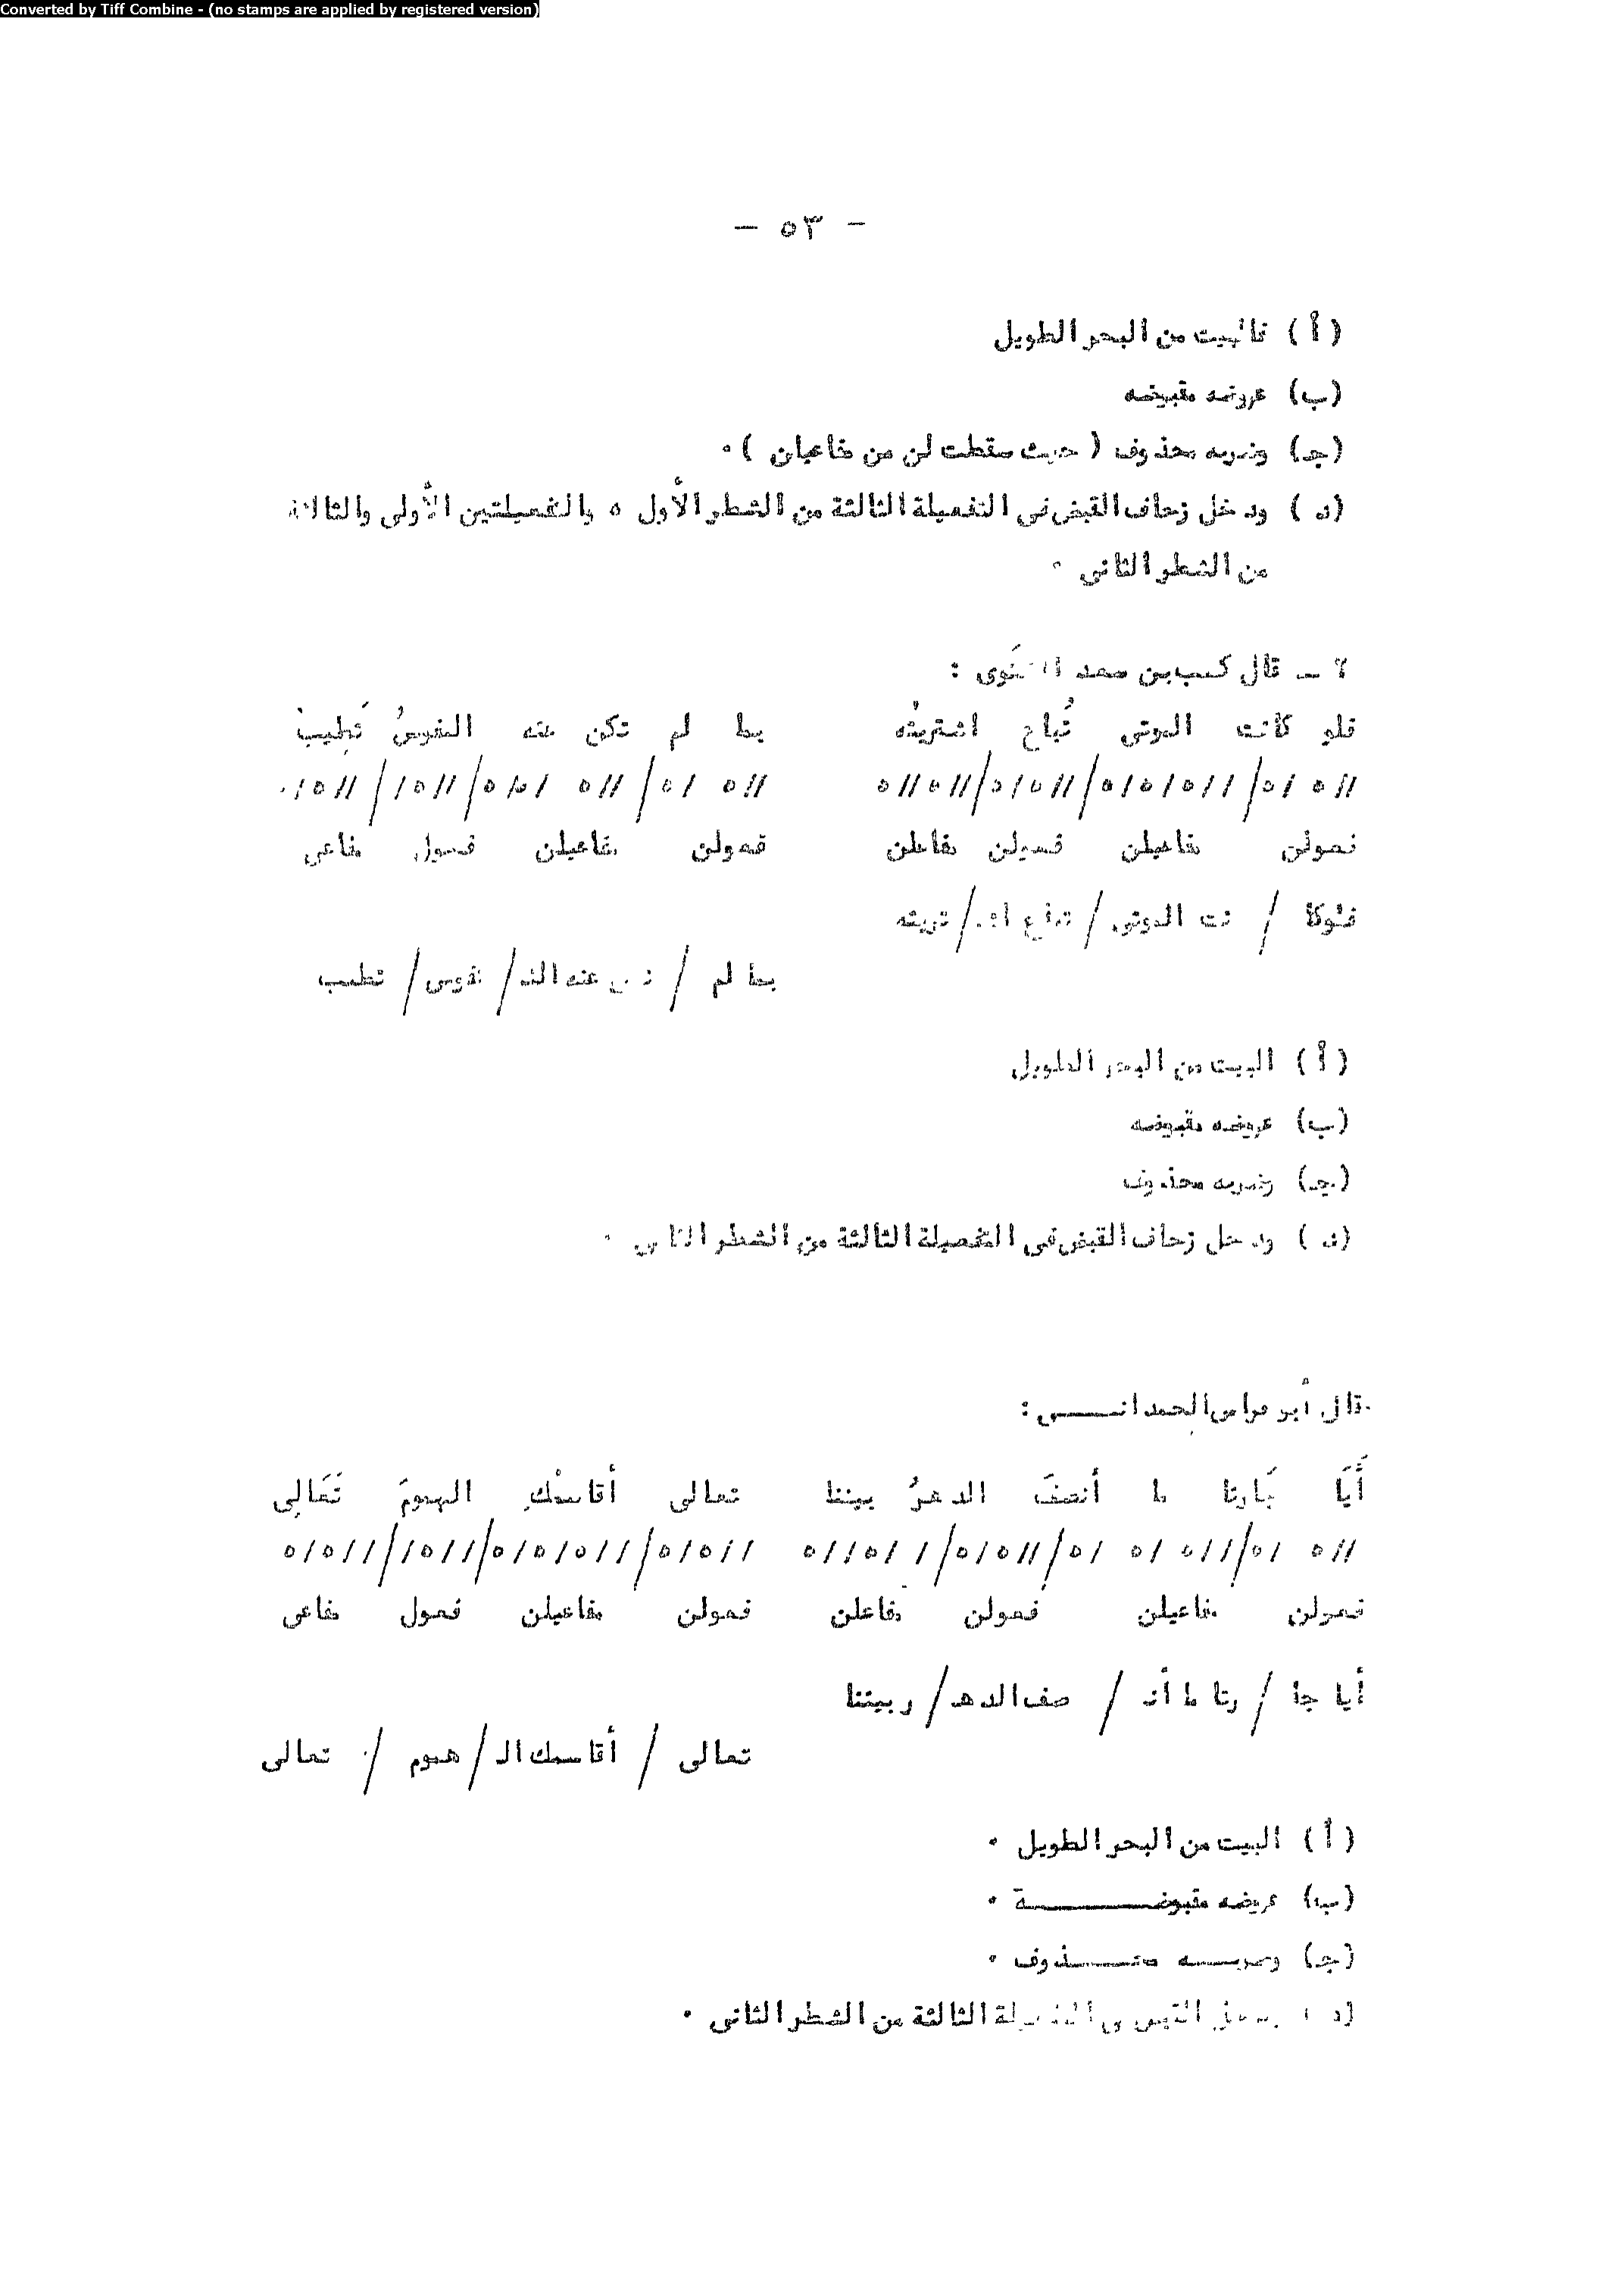 Converted by Tiff Combine - (no stamps are applied by registered version)
— ٥٣ —
( أ ) فالبيت من البحر الطويل
(ب) عروضه مقبوضه
(جـ) وضربه محذوف ( حيث سقطت لن من مفاعيلن ) ٠
(د ) ودخل زحاف القبض فى التفعيلة الثالثة من الشطر الأول ٥ والتفعيلتين الأولى والثالثة
من الشطر الثانى ٠
٢ ــ قال كعب بن سعد الغنوى :
فلو كانت الموتى تُباع اشتريتُه بما لم تكن عنه النفوسُ تَطِيبُ
//٥ /٥/ //٥/٥/٥/ //٥/٥/ //٥//٥ //٥ /٥/ //٥ /٥/٥/ //٥/ //٥/٥
فعولن مفاعيلن فعولن مفاعلن فعولن مفاعيلن فعول مفاعى
فلوكا / نت الموتى / تباع اشـ / تريته
بما لم / تكن عنه النـ / نفوس / تطيب
( أ ) البيت من البحر الطويل
(ب) عروضه مقبوضه
(جـ) وضربه محذوف
(د ) ودخل زحاف القبض فى التفعيلة الثالثة من الشطر الثانى ٠
قال أبو فراس الحمدانــــى :
أَيَا جَارتا ما أنصفَ الدهرُ بيننا تعالى أُقاسمْكِ الهمومَ تَعَالِى
//٥ /٥/ //٥ /٥ /٥/ //٥/٥/ //٥//٥ //٥/٥/ //٥/٥/٥/ //٥/ //٥/٥
فعولن مفاعيلن فعولن مفاعلن فعولن مفاعيلن فعول مفاعى
أيا جا / رتا ما أنـ / صف الدهـ / ر بيننا
تعالى / أقاسمك الـ / هموم / تعالى
( أ ) البيت من البحر الطويل ٠
(ب) عروضه مقبوضــــــة ٠
(جـ) وضربــه محــــذوف ٠
(د ) ودخل القبض فى التفعيلة الثالثة من الشطر الثانى ٠